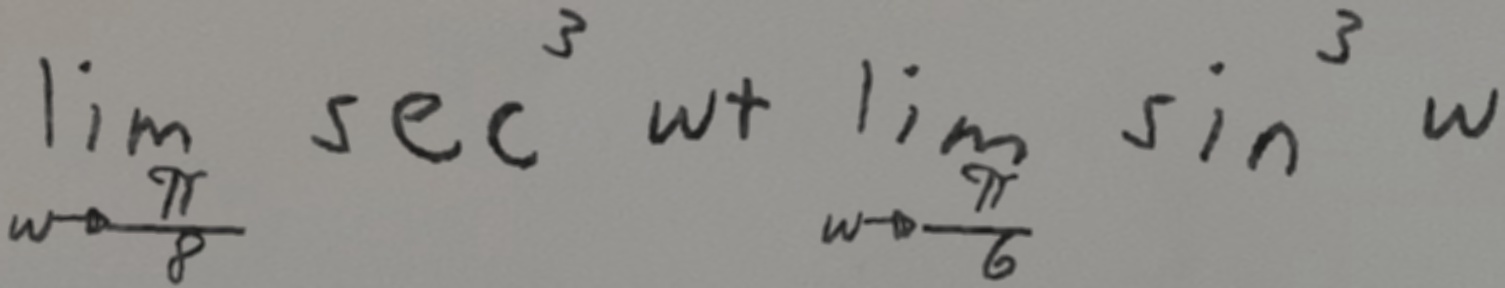 \lim_{w \to \frac{\pi}{8}} \sec^3 w + \lim_{w \to \frac{\pi}{6}} \sin^3 w